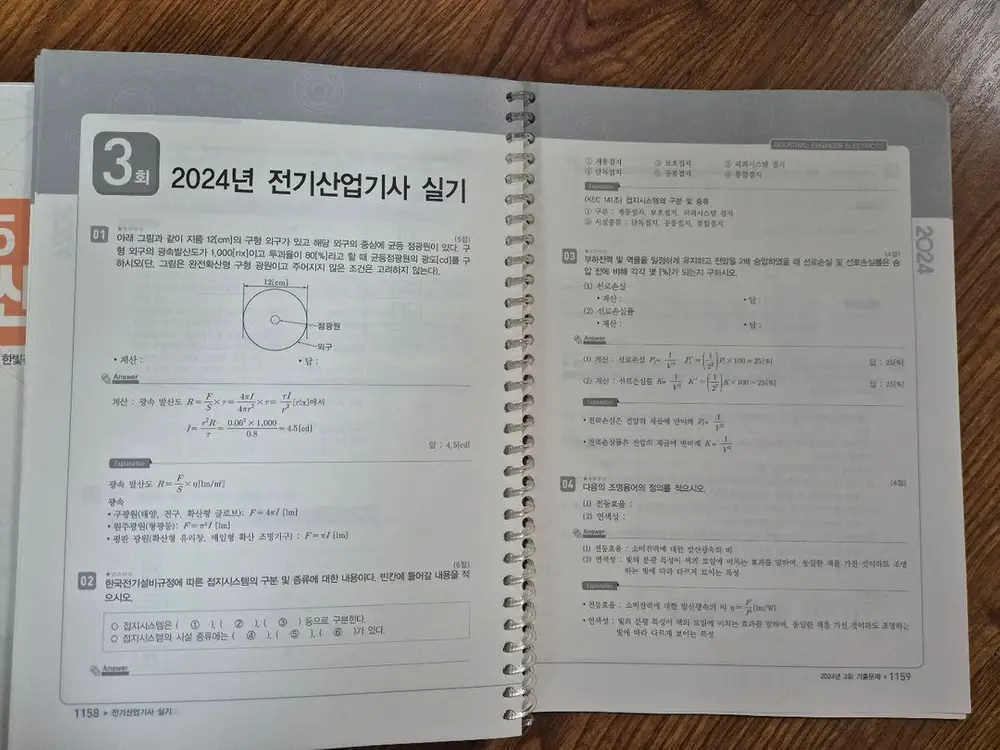 3회
2024년 전기산업기사 실기
01
(6점)
아래 그림과 같이 지름 12[cm]의 구형 외구가 있고 해당 외구의 중심에 균등 점광원이 있다. 구
형 외구의 광속발산도가 1,000[rlx]이고 투과율이 80[%]라고 할 때 균등점광원의 광도[cd]를 구
하시오(단, 그림은 완전확산형 구형 광원이고 주어지지 않은 조건은 고려하지 않는다).
12[cm]
점광원
외구
• 계산 :
• 답 :
Answer
계산 : 광속 발산도 R = F/S × τ = 4πI/4πr² × τ = τI/r² [rlx]에서
I = r²R/τ = 0.06² × 1,000/0.8 = 4.5[cd]
답 : 4.5[cd]
Explanation
광속 발산도 R = F/S × η[lm/m²]
광속
• 구광원(태양, 전구, 확산형 글로브): F = 4πI [lm]
• 원주광원(형광등): F = π²I [lm]
• 평판 광원(확산형 유리창, 매입형 확산 조명기구) : F = πI [lm]
02
(6점)
한국전기설비규정에 따른 접지시스템의 구분 및 종류에 대한 내용이다. 빈칸에 들어갈 내용을 적
으시오.
○ 접지시스템은 ( ① ), ( ② ), ( ③ ) 등으로 구분한다.
○ 접지시스템의 시설 종류에는 ( ④ ), ( ⑤ ), ( ⑥ )가 있다.
Answer
1158 • 전기산업기사 실기
INDUSTRIAL ENGINEER ELECTRICITY
① 계통접지 ② 보호접지 ③ 피뢰시스템 접지
④ 단독접지 ⑤ 공통접지 ⑥ 통합접지
Explanation
(KEC 141조) 접지시스템의 구분 및 종류
① 구분 : 계통접지, 보호접지, 피뢰시스템 접지
② 시설종류 : 단독접지, 공통접지, 통합접지
2024
03
(4점)
부하전력 및 역률을 일정하게 유지하고 전압을 2배 승압하였을 때 선로손실 및 선로손실률은 승
압 전에 비해 각각 몇 [%]가 되는지 구하시오.
(1) 선로손실
• 계산 :
• 답 :
(2) 선로손실률
• 계산 :
• 답 :
Answer
(1) 계산 : 선로손실 Pₗ ∝ 1/V² Pₗ′ = (1/2²)Pₗ × 100 = 25[%]
답 : 25[%]
(2) 계산 : 선로손실률 K ∝ 1/V² K′ = (1/2²)K × 100 = 25[%]
답 : 25[%]
Explanation
• 전력손실은 전압의 제곱에 반비례 Pₗ ∝ 1/V²
• 전력손실률은 전압의 제곱에 반비례 K ∝ 1/V²
04
(4점)
다음의 조명용어의 정의를 적으시오.
(1) 전등효율 :
(2) 연색성 :
Answer
(1) 전등효율 : 소비전력에 대한 발산광속의 비
(2) 연색성 : 빛의 분광 특성이 색의 보임에 미치는 효과를 말하며, 동일한 색을 가진 것이라도 조명
하는 빛에 따라 다르게 보이는 특성
Explanation
• 전등효율 : 소비전력에 대한 발산광속의 비 η = F/P [lm/W]
• 연색성 : 빛의 분광 특성이 색의 보임에 미치는 효과를 말하며, 동일한 색을 가진 것이라도 조명하는
빛에 따라 다르게 보이는 특성
2024년 3회 기출문제 • 1159